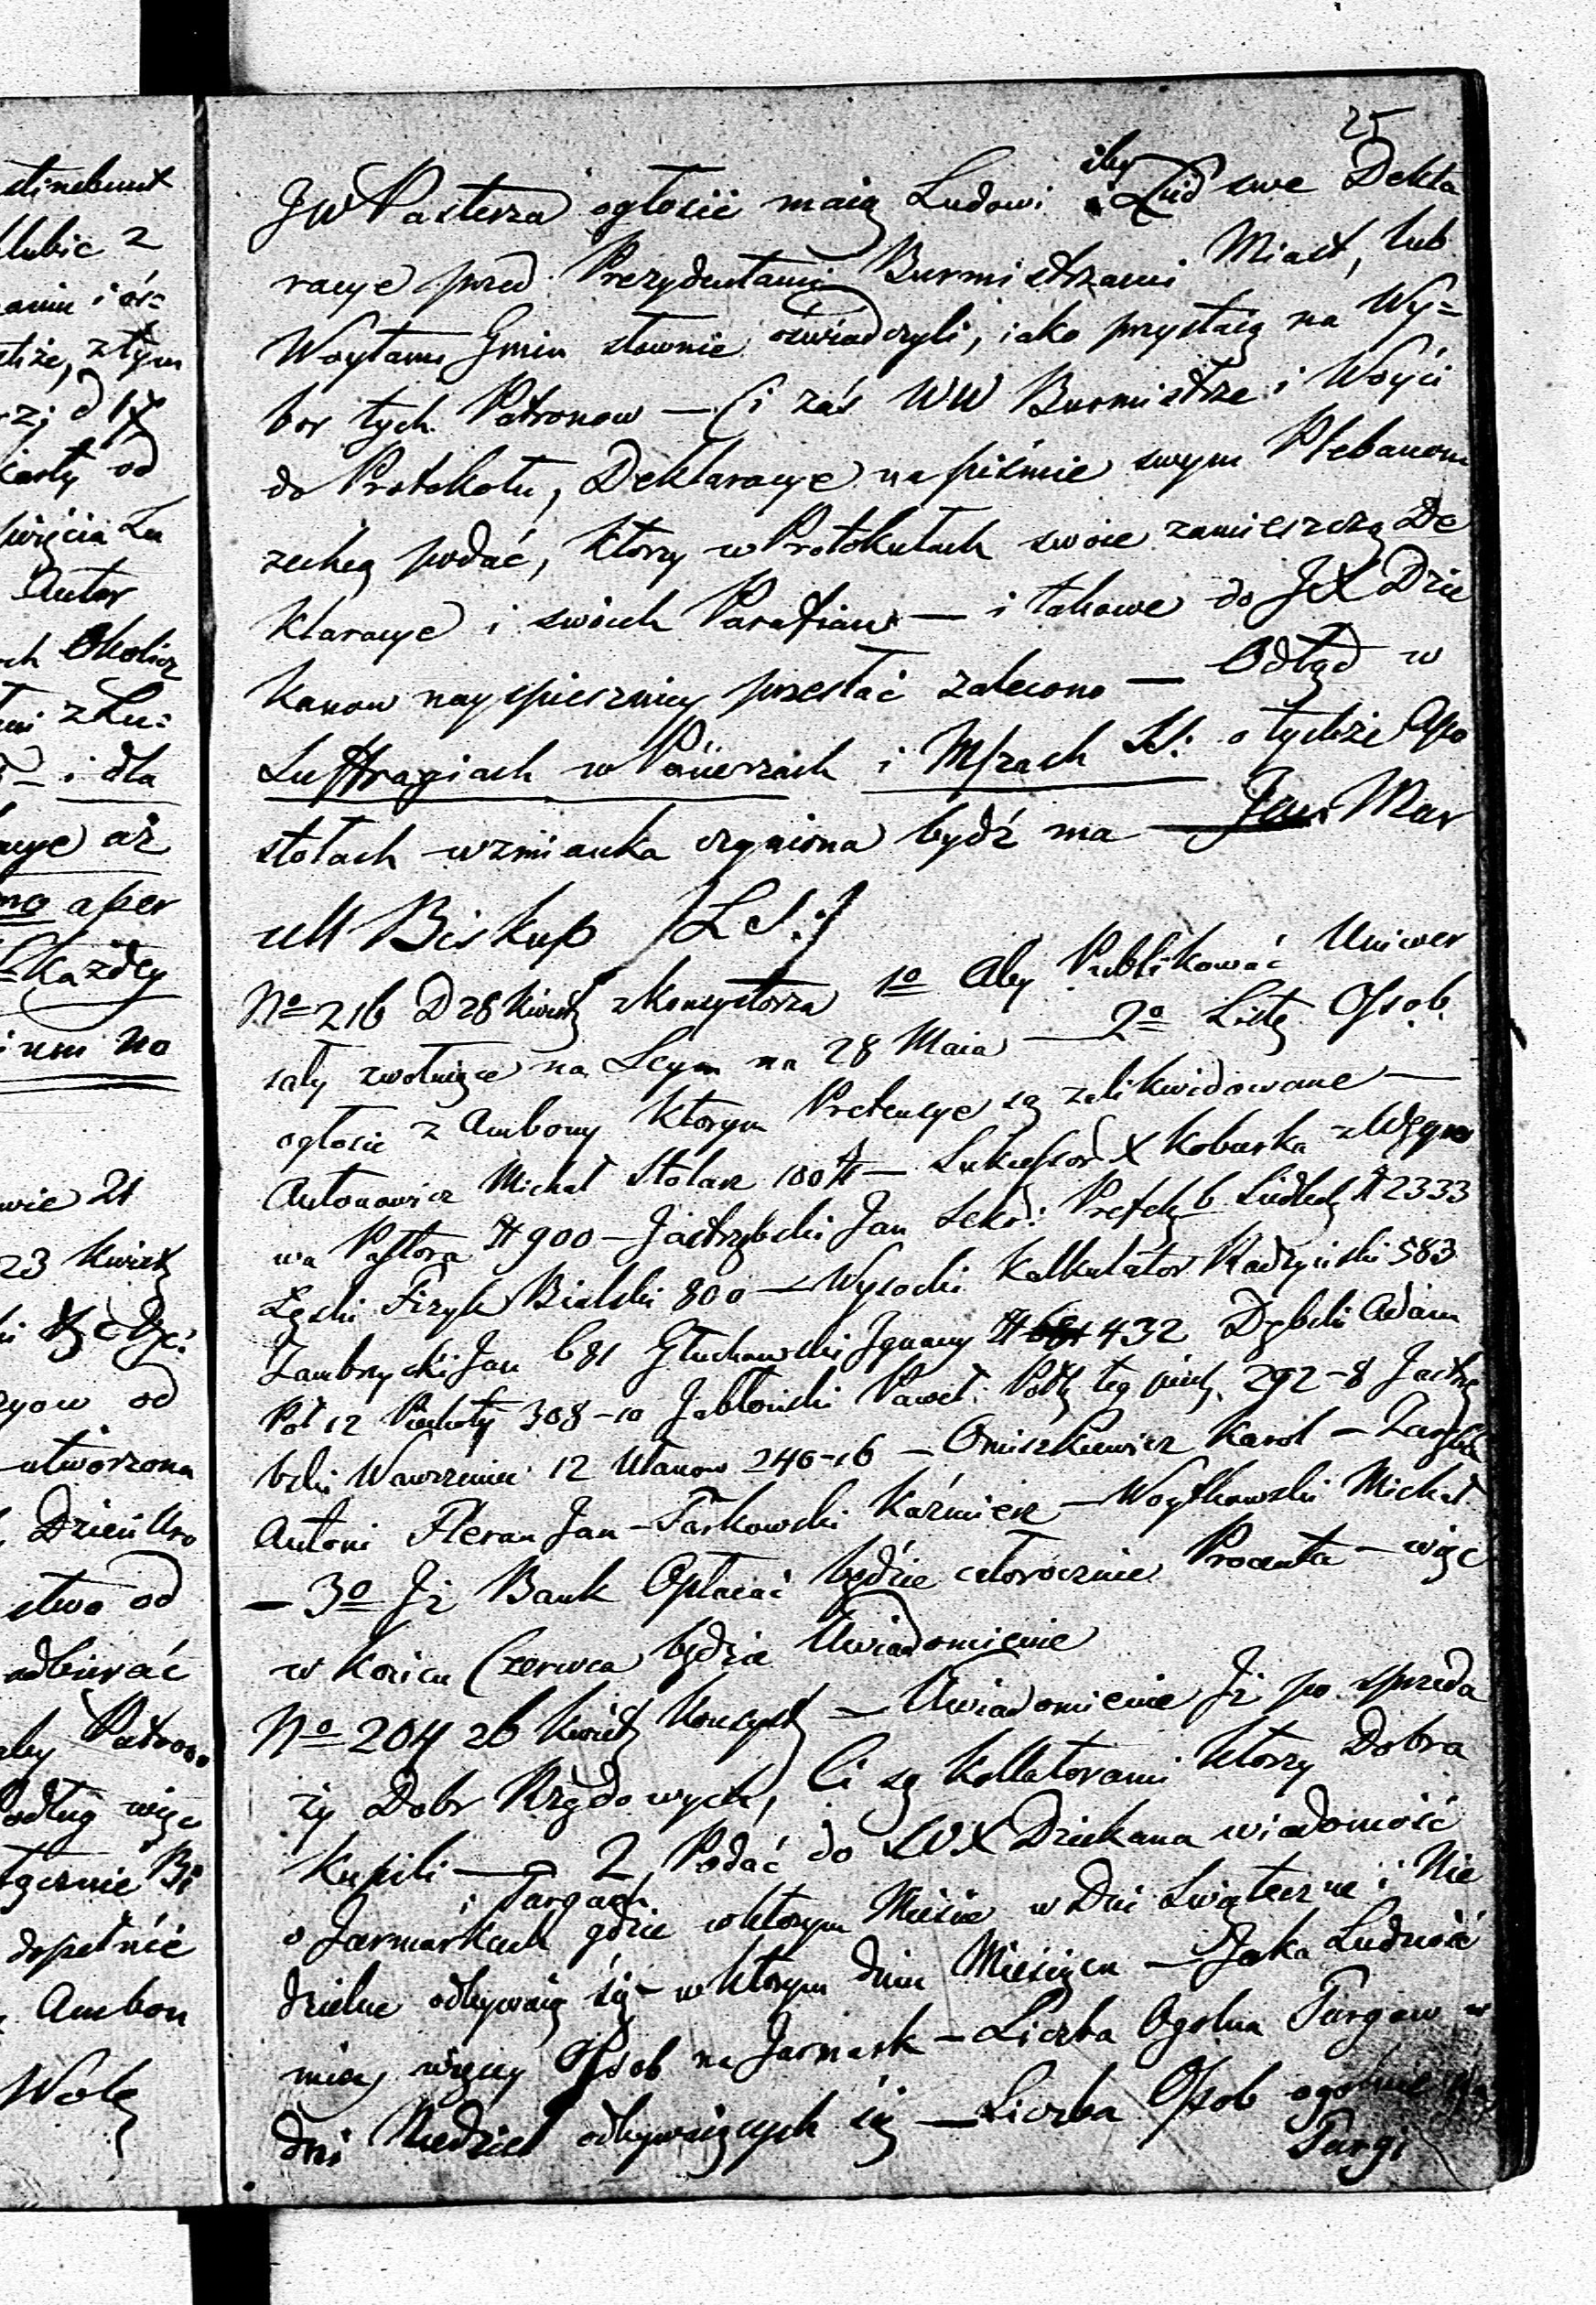 stinebunt
lubic z
aniu i ós=
stże, z tym
rz; d 17
karty od
więcia Lu
Autor
ch Okolicz
mi z Lu=
– i dla
cye aż
mo aper
każdey
inni no
wie 21
23 Kwiet
ryow od
utworzona
Dzień Uro
stwo od
odbierać
aby Patrono
odług więc
łącznie Bi
dopełnić
Ambon
Wolą
25
JW Pasterza ogłosić maią Ludowi żeby Lud swe Dekla
racye przed Prezydentami Burmistrzami Miast, lub
Woytami Gmin słownie oświadczyli, iako przystaią na Wy=
bor tych Patronow — Ci zaś WW Burmistrze i Woyci
do Protokołu, Deklaracye na piśmie swym Plebanom
zechcą podać, ktorzy w Protokułach swoie zamieszczą De
klaracye i swoich Parafian — i takowe do JX Dzie
kanow nayspieszniey przesłać zalecono — Odtąd w
Suffragiach w Pacierzach i Mszach SS: o tychże Apo
stołach wzmianka czyniona bydź ma — Jan Mar
cell Biskup /LS:/
No 216 D 28 Kwiet z Konsystorza 1o Aby Publikować Uniwer
sały zwołuiące na Seym na 28 Maia — 2o Listę Osob
ogłosić z Ambony ktorym Pretensye są zalikwidowane —
Antonowicz Michał Stolarz 100 ff — Sukcessor X Koburka z Węgro
wa Pastora ff 900 — Jastrzębski Jan Sekr: Prefek b Siedlec ff 2333
Łęski Fizyk Bialski 800 — Wysocki Kalkulator Radzyński 583
Zambrzycki Jan 681 Głuchowski Ignacy ff 432 Dębski Adam
Poł 12 Piechoty 308–10 Jabłoński Paweł Poł teg piech. 292–8 Jastrzę
bski Wawrzeniec 12 Ułanow 246–16 — Omiszkiewicz Karol —
Antoni Fleran Jan — Tarkowski Kaźmierz — Woytkowski Michał
— 3o Jż Bank Opłacać będzie całorocznie Procenta — więc
w Koncu Czerwca będzie Uwiadomienie
No 204 26 Kwiet Konsyst — Uwiadomienie Jż po sprzeda
ży Dobr Rządowych, Ci są Kollatorami ktorzy Dobra
kupili — 2 Podać do WX Dziekana wiadomość
i Targach
o Jarmarkach gdzie w ktorym Mieście w Dni Swiąteczne i Nie
dzielne odbywaią się — w ktorym dniu Miesiąca — Jaka Ludność
miey więcey Osob na Jarmark — Liczba Ogolna Targow w
dni Niedziel odbywaiących się — Liczba Osob ogolnie na
Targi